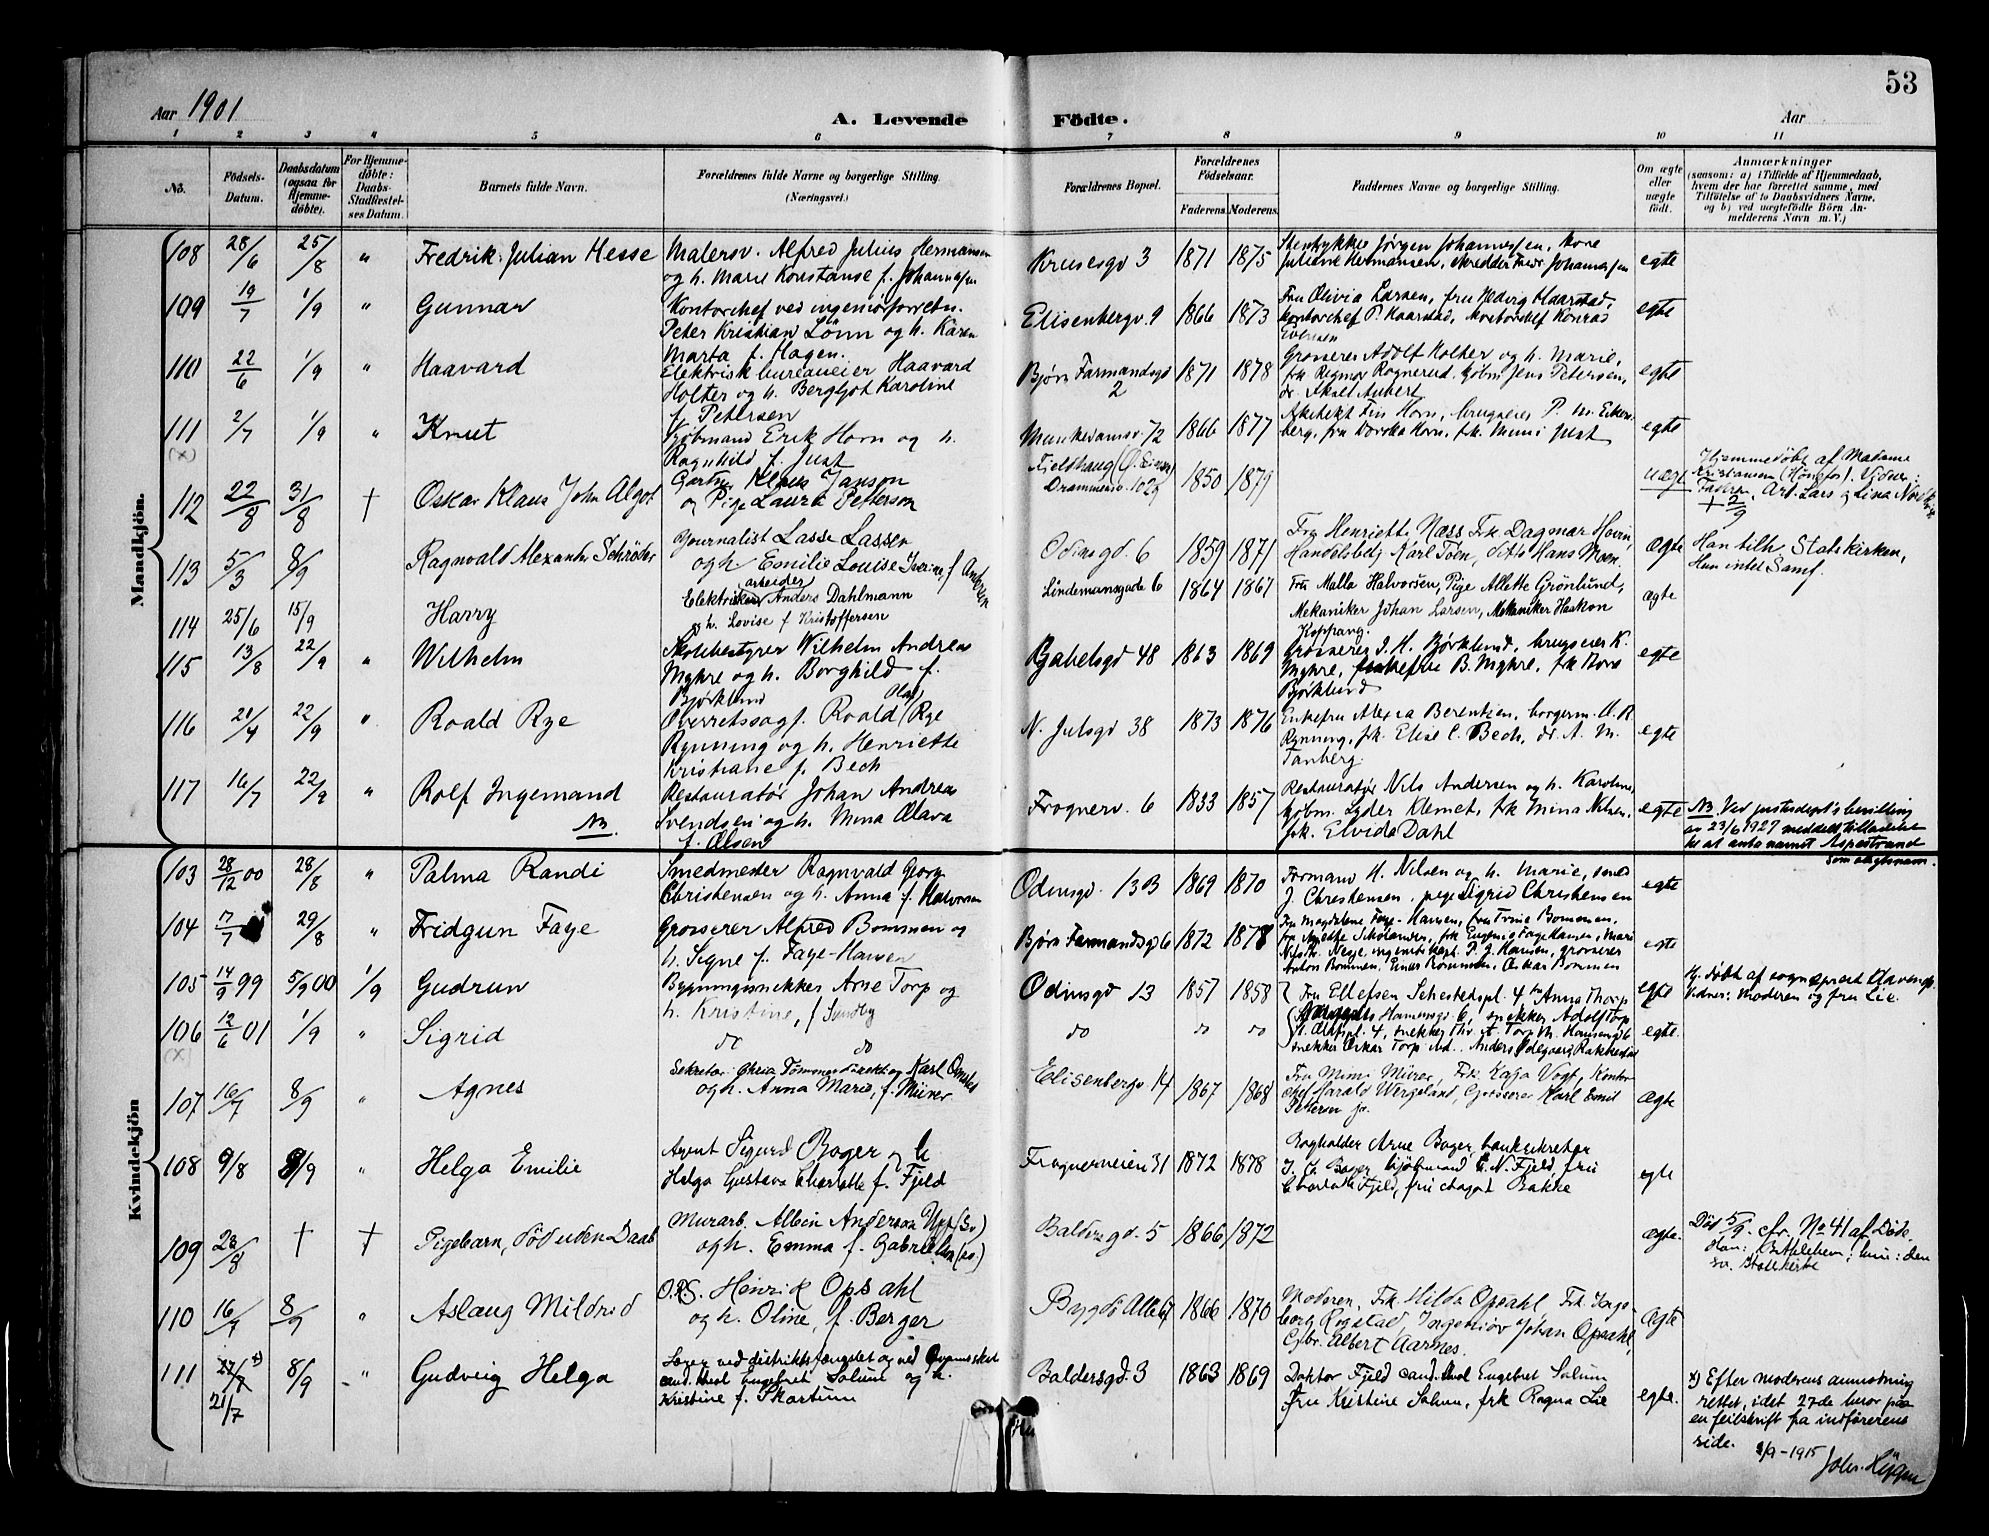 53
Aar 1901
A. Levende Födte.
Aar
1 2 3 4 5 6 7 8 9 10 11
No.
Födsels-Datum.
Daabsdatum (ogsaa for Hjemme-døbte).
For Hjemme-døbte: Daabs-Stadfæstel-ses Datum.
Barnets fulde Navn.
Forældrenes fulde Navne og borgerlige Stilling. (Næringsvei.)
Forældrenes Bopæl.
Forældrenes Födselsaar.
Faderens. Moderens.
Faddernes Navne og borgerlige Stilling.
Om ægte eller uægte født.
Anmærkninger
(saasom: a) i Tilfælde af Hjemmedaab, hvem der har forrettet samme, med Tilföielse af to Daabsvidners Navne, og b) ved uægtefödte Börn An-melderens Navn m. V.)
Mandkjön.
108 28/6 25/8 " Fredrik Julian Hesse
Malersv. Alfred Julius Hermansen
og h. Marie Konstanse f. Johannesen
Krusesgd 3 1871 1875
Stenhykker Jørgen Johannesen, Kone
Juliane Hermansen, Skredder Fredr. Johannesen
egte
109 19/7 1/9 " Gunnar
Kontorchef ved ingeniørforretn.
Peter Kristian Lønn og h. Karen
Marta f. Hagen.
Elisenbergv. 9 1866 1873
Fru Olivia Larsen, fru Hedvig Haarstad,
kontorchef P. Haarstad, kontorchef Konrad
Evensen
egte
110 22/6 1/9 " Haavard
Elektrisk bureaueier Haavard
Holter og h. Bergljot Karoline
f. Petersen
Bjørn Farmandsgd 2 1871 1878
Grosserer Adolf Holter og h. Marie,
frk Regmor Rognerud, kjøbm Jens Petersen,
dr. Aksel Aubert
egte
111 2/7 1/9 " Knut
(x)
Kjøbmand Erik Horn og h.
Ragnhild f. Just
Munkedamsv. 72 1866 1877
Arkitekt Finn Horn, brugseier P. M.
berg, fru Dorothea Horn, frk. Mimi Just
egte
112 22/8 31/8 † Oskar Klaus John Algot
Gartner Klaus Janson
og Pige Laura Petterson
Fjeldhaug
Drammensv. 102g 1850 1879
uægt
Hjemmedøbt af Madame
Kristiansen (Hønefos). Vidner:
Faderen, Arb. Lars og Lina
† 2/9
113 5/3 8/9 Ragnvald Alexander Schrøder
Journalist Lasse Lassen
og h. Emilie Louise f. Andersen
Odinsgd. 6 1859 1871
Fru Henriette Næss Frk Dagmar Horn,
Handelsbetj Karl Toen, ditto Hans Moen
ægte
Han tilh. Statskirken,
Hun intet Samf.
114 25/6 15/9 Harry
Elektriker arbeider Anders Dahlmann
og h. Lovise f. Kristoffersen
Lindemansgade 6 1864 1867
Fru Malla Halvorsen, Pige Allette Grønlund,
Mekaniker Johan Larsen, Mekaniker Haakon
Koppang.
ægte
115 13/8 22/9 " Wilhelm
Skolebestyrer Wilhelm Andreas
Myhre og h. Borghild f.
Bjørklund
Gabelsgd 48 1863 1869
Grosserer J. H. Bjørklund, brugseier K.
Myhre, enkefru B. Myhre, frk Thora
Bjørklund
egte
116 21/4 22/9 " Roald Rye
Overretssagf. Roald Olaf Rye
Rynning og h. Henriette
Kristiane f. Bech
N. Julsgd 38 1873 1876
Enkefru Alexa Berentzen, borgerm. A. R
Rynning, frk. Elise C. Bech, dr. A. M.
Tanberg.
egte
117 16/7 22/9 " Rolf Ingemand
NB.
Restauratør Johan Andreas
Svendsen og h. Mina Olava
f. Olsen
Frognerv. 6 1833 1857
Restauratør Nils Andersen og h. Karoline,
kjøbm. Lyder Klemet, frk Mina Nilsen,
frk. Elvida Dahl
egte
NB. Ved justisdept's bevilling
av 23/6 1927 meddelt tilladelse
til at anta navnet Aspestrand
som slegtsnavn.
Kvindekjön
103 28/12 00 28/8 " Palma Randi
Smedmester Ragnvald Georg
Christensen og h. Anna f. Halvorsen
Odinsgd. 13B 1869 1870
Formann H. Nilsen og h. Marie, smed
J. Christensen, pige Sigrid Christensen
egte
104 17/7 29/8 " Fridgun Faye
Grosserer Alfred Bommen og
h. Signe f. Faye-Hansen
Bjørn Farmandsgd 6 1872 1878
Fru Magdalene Faye-Hansen, fru Trine Bommen,
fru Anette Skolander, frk Eugenie Faye Hansen, Marie
P. J. Hansen, grosserer
Anton Bommen, Einar Bommen, Oskar Bommen
egte
105 14/9 99 5/9 00 1/9 Gudrun
Bygningssnekker Arne Torp og
h. Kristine, f Sundby
Odinsgd 13 1857 1858
Fru Ellefsen Sehestedspl. 4 fru Anna Thorp
egte
Hj. døbt af sognepræst
Vidner: Moderen og fru Lie.
106 12/6 01 1/9 " Sigrid
(x)
do do
do do do
snekker Adolf Torp
snekker Oskar Torp
egte.
107 16/7 8/9 " Agnes
Sekretær Karl
og h. Anna Marie, f. Mürer
Elisenbergv 14 1867 1868
Fru Mimi Mürer, Frk. Kaja Vogt, Kontor
chef Harald Wergeland, Grosserer Karl Emil
Petterson jr.
ægte
108 9/8 8/9 " Helga Emilie
Agent Sigurd Bøger og h
Helga Gustava Charlotte f. Fjeld
Frognerveien 31 1872 1878
Bogholder Arne Bøger, banksekretær
J. Ch. Bøger, kjøbmand C. N. Fjeld, fru
Charlotte Fjeld, fru Bakke
egte
109 28/8 † † Pigebarn, død uden Daab
Murarb. Albin Anderson
og h. Emma f. Gabrielsen
Baldersgd. 5 1866 1872
ægte.
Död 5/9. cfr. No 41 af Döde.
Han: Bethlehem; hun: den
sv. Statskirke
110 16/7 8/9 " Aslaug Mildrid
O.R.S. Henrik Opsahl
og h. Oline, f. Berger
Bygdö Allé 67 1866 1870
Moderen, Frk. Hilda Opsahl, Frk. Inge-
borg Rogstad, Ingeniör Johan Opsahl,
Gbr. Albert Aarnes.
ægte
111 27/7 x) 8/9 - " Gudveig Helga
21/7
Læge ved distriktsfængslet og ved
cand. med Engebret Solum og h.
Kristine f. Skartum
Baldersgd. 3 1863 1869
Doktor Fjeld cand. med Engebret Solum
fru Kristine Solum, frk Ragna Lie
egte.
x) Efter moderens anmodning
rettet, idet 27de beror paa
en feilskrift fra indførerens
side. 8/9 - 1915